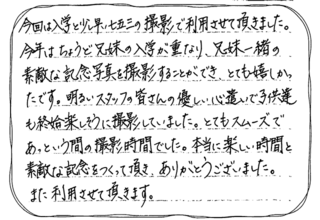 今回は入学と少し早い七五三の撮影で利用させて頂きました。
今年はちょうど兄妹の入学が重なり、兄妹一緒の
素敵な記念写真を撮影することができ、とても嬉しかっ
たです。明るいスタッフの皆さんの優しい心遣いで子供達
も終始楽しそうに撮影していました。とてもスムーズで
あっという間の撮影時間でした。本当に楽しい時間と
素敵な記念をつくって頂き、ありがとうございました。
また利用させて頂きます。